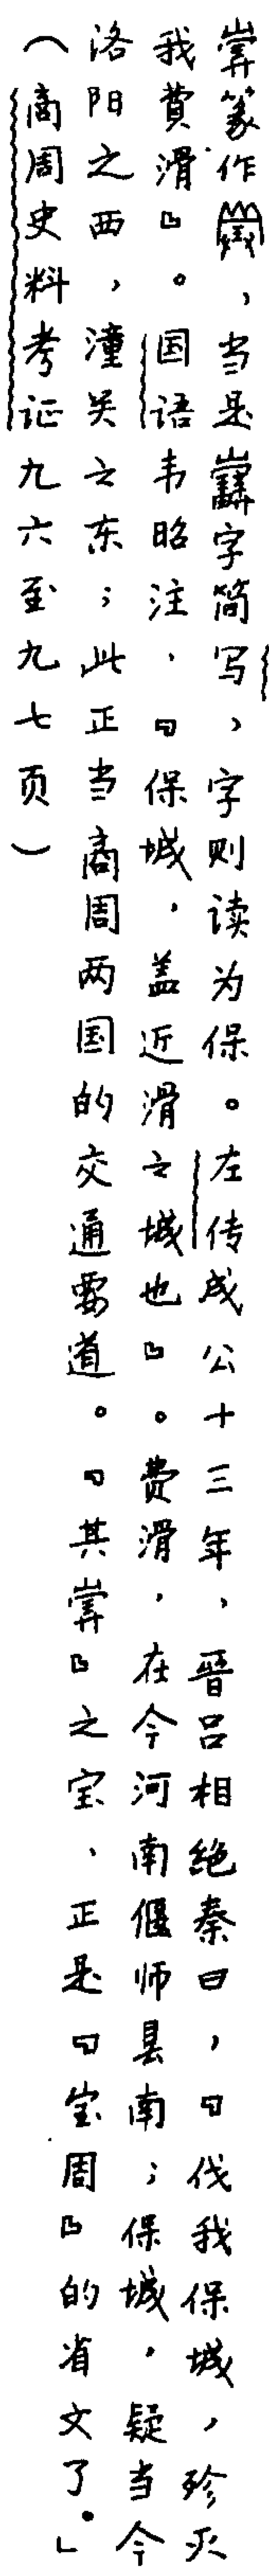 篆作，当是字简写，字则读为保。左传成公十三年，晋吕相绝秦曰，『伐我保城，殄灭
我费滑』。国语韦昭注，『保城，盖近滑之城也』。费滑，在今河南偃师县南；保城，疑当今
洛阳之西，潼关之东；此正当商周两国的交通要道。『其』之宝，正是『宝周』的省文了。」
（商周史料考证九六至九七页）